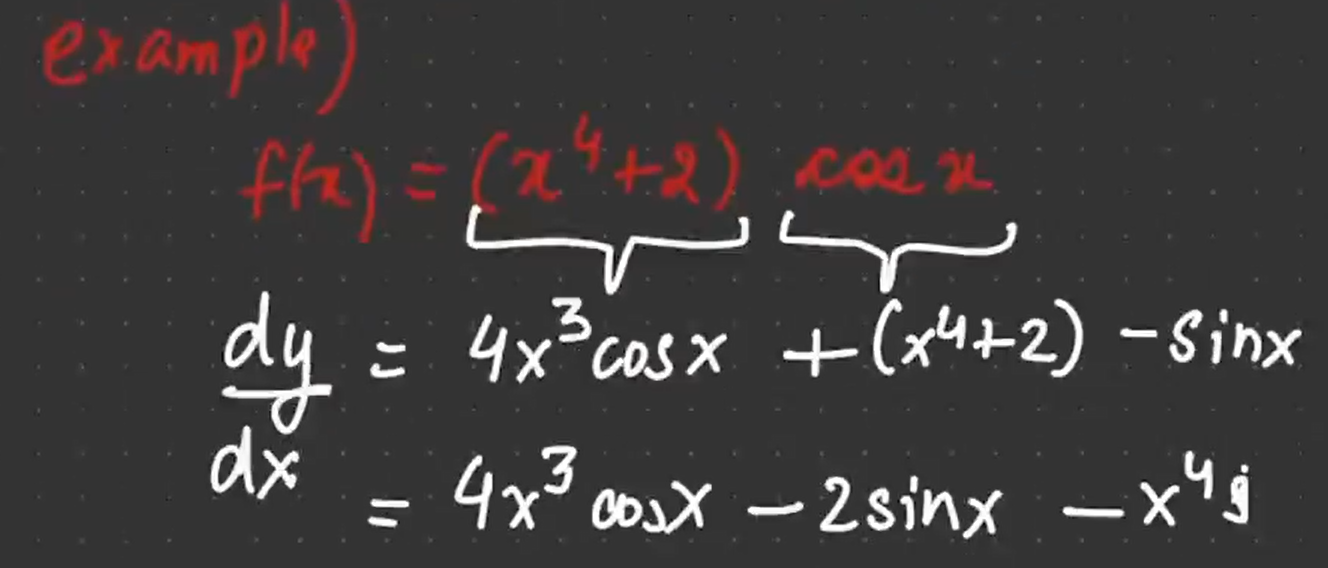 example)
f(x) = (x⁴+2) cos x
dy/dx = 4x³cosx + (x⁴+2) -sinx
= 4x³ cosx - 2sinx - x⁴